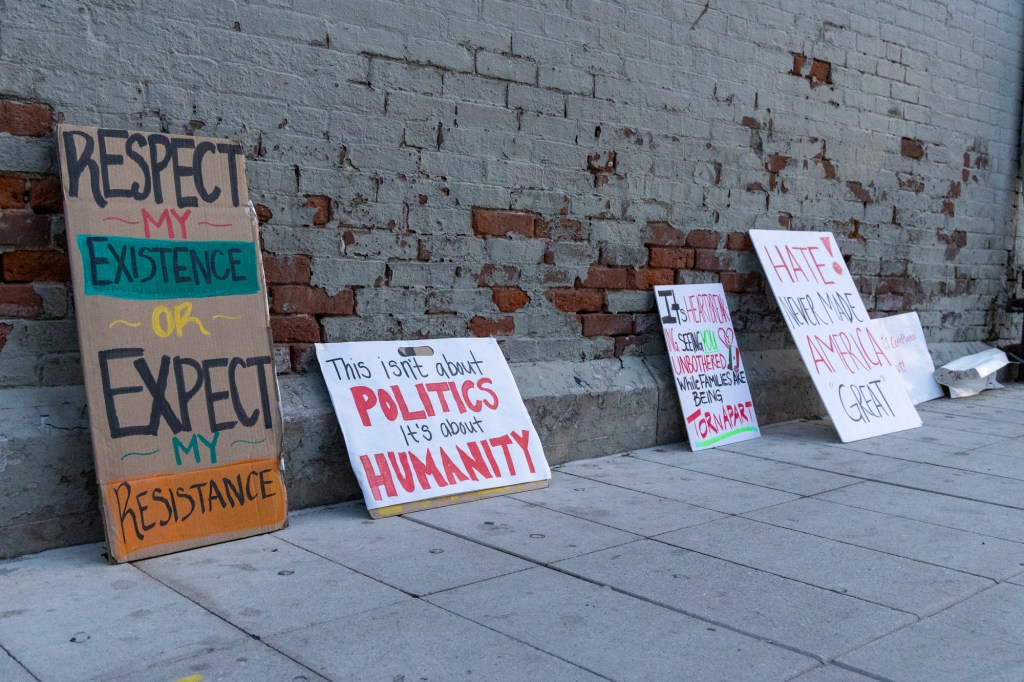 RESPECT
MY
EXISTENCE
OR
EXPECT
MY
RESISTANCE
This isn't about
POLITICS
It's about
HUMANITY
It's HEARTBREAK
NG SEEING YOU
UNBOTHERED
While FAMILIES ARE
BEING
TORN APART
HATE
NEVER MADE
AMERICA
"GREAT"